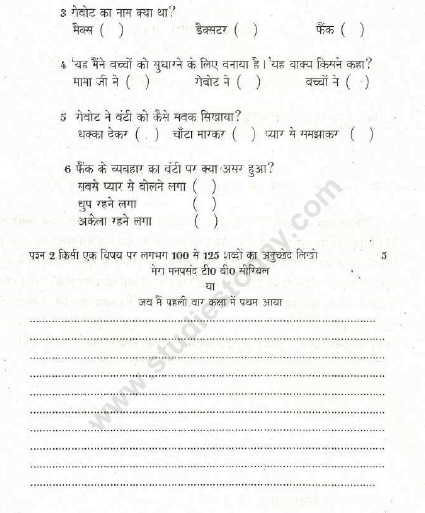 3 रोबोट का नाम क्या था?
मैक्स ( ) डैक्सटर ( ) फैंक ( )
4 'यह मैंने बच्चों को सुधारने के लिए बनाया है।' यह वाक्य किसने कहा?
मामा जी ने ( ) रोबोट ने ( ) बच्चों ने ( )
5 रोबोट ने बंटी को कैसे सबक सिखाया?
धक्का देकर ( ) चाँटा मारकर ( ) प्यार से समझाकर ( )
6 फैंक के व्यवहार का बंटी पर क्या असर हुआ?
सबसे प्यार से बोलने लगा ( )
चुप रहने लगा ( )
अकेला रहने लगा ( )
प्रश्न 2 किसी एक विषय पर लगभग 100 से 125 शब्दों का अनुच्छेद लिखो 5
मेरा मनपसंद टी० वी० सीरियल
या
जब मैं पहली बार कक्षा में प्रथम आया
www.studiestoday.com